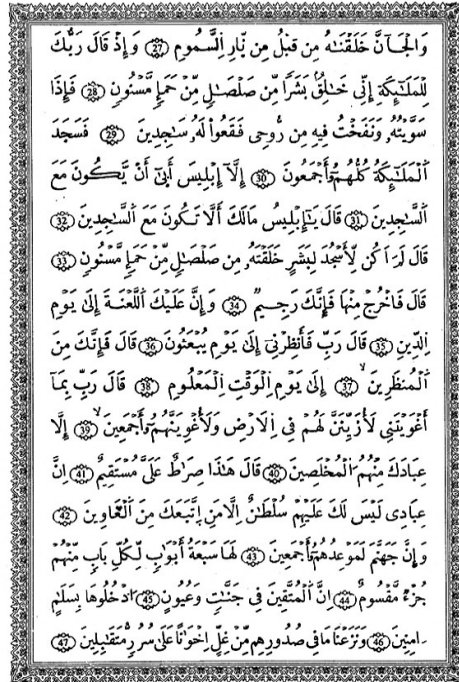 وَالْجَآنَّ خَلَقْنَٰهُ مِن قَبْلُ مِن نَّارِ السَّمُومِ 27 وَإِذْ قَالَ رَبُّكَ
لِلْمَلَٰٓئِكَةِ إِنِّى خَٰلِقٌۢ بَشَرًا مِّن صَلْصَٰلٍ مِّنْ حَمَإٍ مَّسْنُونٍ 28 فَإِذَا
سَوَّيْتُهُۥ وَنَفَخْتُ فِيهِ مِن رُّوحِى فَقَعُوا لَهُۥ سَٰجِدِينَ 29 فَسَجَدَ
اَلْمَلَٰٓئِكَةُ كُلُّهُمُۥٓ أَجْمَعُونَ 30 إِلَّآ إِبْلِيسَ أَبَىٰٓ أَنْ يَّكُونَ مَعَ
اَلسَّٰجِدِينَ 31 قَالَ يَٰٓإِبْلِيسُ مَالَكَ أَلَّا تَكُونَ مَعَ اَلسَّٰجِدِينَ 32
قَالَ لَمَ اَكُن لِّأَسْجُدَ لِبَشَرٍ خَلَقْتَهُۥ مِن صَلْصَٰلٍ مِّنْ حَمَإٍ مَّسْنُونٍ 33
قَالَ فَاخْرُجْ مِنْهَا فَإِنَّكَ رَجِيمٌ 34 وَإِنَّ عَلَيْكَ اَللَّعْنَةَ إِلَىٰ يَوْمِ
اِلدِّينِ 35 قَالَ رَبِّ فَأَنظِرْنِىٓ إِلَىٰ يَوْمِ يُبْعَثُونَ 36 قَالَ فَإِنَّكَ مِنَ
اَلْمُنظَرِينَ 37 إِلَىٰ يَوْمِ اِلْوَقْتِ اِلْمَعْلُومِ 38 قَالَ رَبِّ بِمَآ
أَغْوَيْتَنِى لَأُزَيِّنَنَّ لَهُمْ فِى اِلَارْضِ وَلَأُغْوِيَنَّهُمُۥٓ أَجْمَعِينَ 39 إِلَّا
عِبَادَكَ مِنْهُمُ اُلْمُخْلَصِينَ 40 قَالَ هَٰذَا صِرَٰطٌ عَلَىَّ مُسْتَقِيمٌ 41 اِنَّ
عِبَادِى لَيْسَ لَكَ عَلَيْهِمْ سُلْطَٰنٌ اِلَّا مَنِ اِتَّبَعَكَ مِنَ اَلْغَاوِينَ 42
وَإِنَّ جَهَنَّمَ لَمَوْعِدُهُمُۥٓ أَجْمَعِينَ 43 لَهَا سَبْعَةُ أَبْوَٰبٍ لِّكُلِّ بَابٍ مِّنْهُمْ
جُزْءٌ مَّقْسُومٌ 44 اِنَّ اَلْمُتَّقِينَ فِى جَنَّٰتٍ وَعُيُونٍ 45 اُدْخُلُوهَا بِسَلَٰمٍ
اٰمِنِينَ 46 وَنَزَعْنَا مَا فِى صُدُورِهِم مِّنْ غِلٍّ اِخْوَٰنًا عَلَىٰ سُرُرٍ مُّتَقَٰبِلِينَ 47